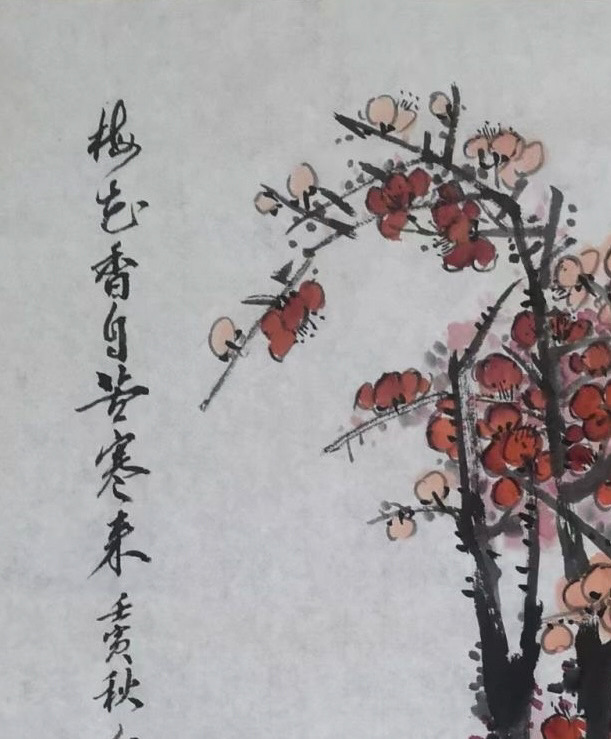 梅花香自苦寒来
壬寅秋